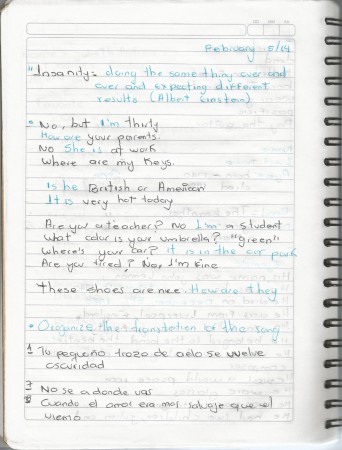 February 5/14
"Insanity: doing the same thing over and
over and expecting different
results (Albert Einstein)
No, but I'm thirty
How are your parents.
No She is at work
Where are my keys.
Is he British or American
It is very hot today
Are you a teacher? No I'm a student
What color is your umbrella? "green"
Where's your car? it is in the car park
Are you tired? No, I'm fine
These shoes are nice. How are they
Organize the translation of the song
1 Tu pequeño trozo de cielo se vuelve
oscuridad
7 No se a donde vas
8 Cuando el amor era mas salvaje que el
viento